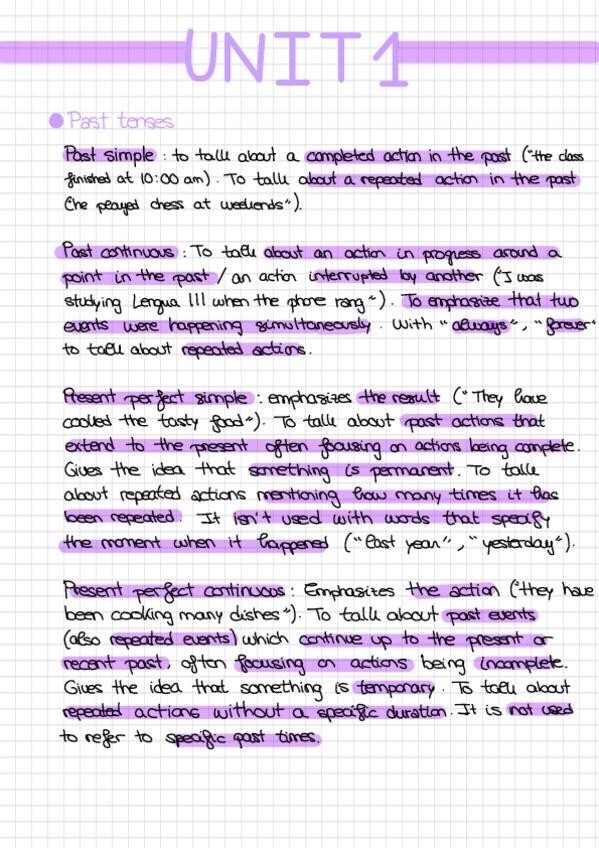 UNIT 1
Past tenses
Past simple : to talk about a completed action in the past ("the class
finished at 10:00 am). To talk about a repeated action in the past
(he played chess at weekends").
Past continuous : To talk about an action in progress around a
point in the past / an action interrupted by another ("I was
studying Lengua III when the phone rang"). To emphasize that two
events were happening simultaneously. With "always", "forever"
to talk about repeated actions.
Present perfect simple : emphasizes the result ("They have
cooked the tasty food"). To talk about past actions that
extend to the present often focusing on actions being complete.
Gives the idea that something is permanent. To talk
about repeated actions mentioning how many times it has
been repeated. It isn't used with words that specify
the moment when it happened ("last year", "yesterday").
Present perfect continuous : Emphasizes the action ("they have
been cooking many dishes"). To talk about past events
(also repeated events) which continue up to the present or
recent past, often focusing on actions being incomplete.
Gives the idea that something is temporary. To talk about
repeated actions without a specific duration. It is not used
to refer to specific past times.